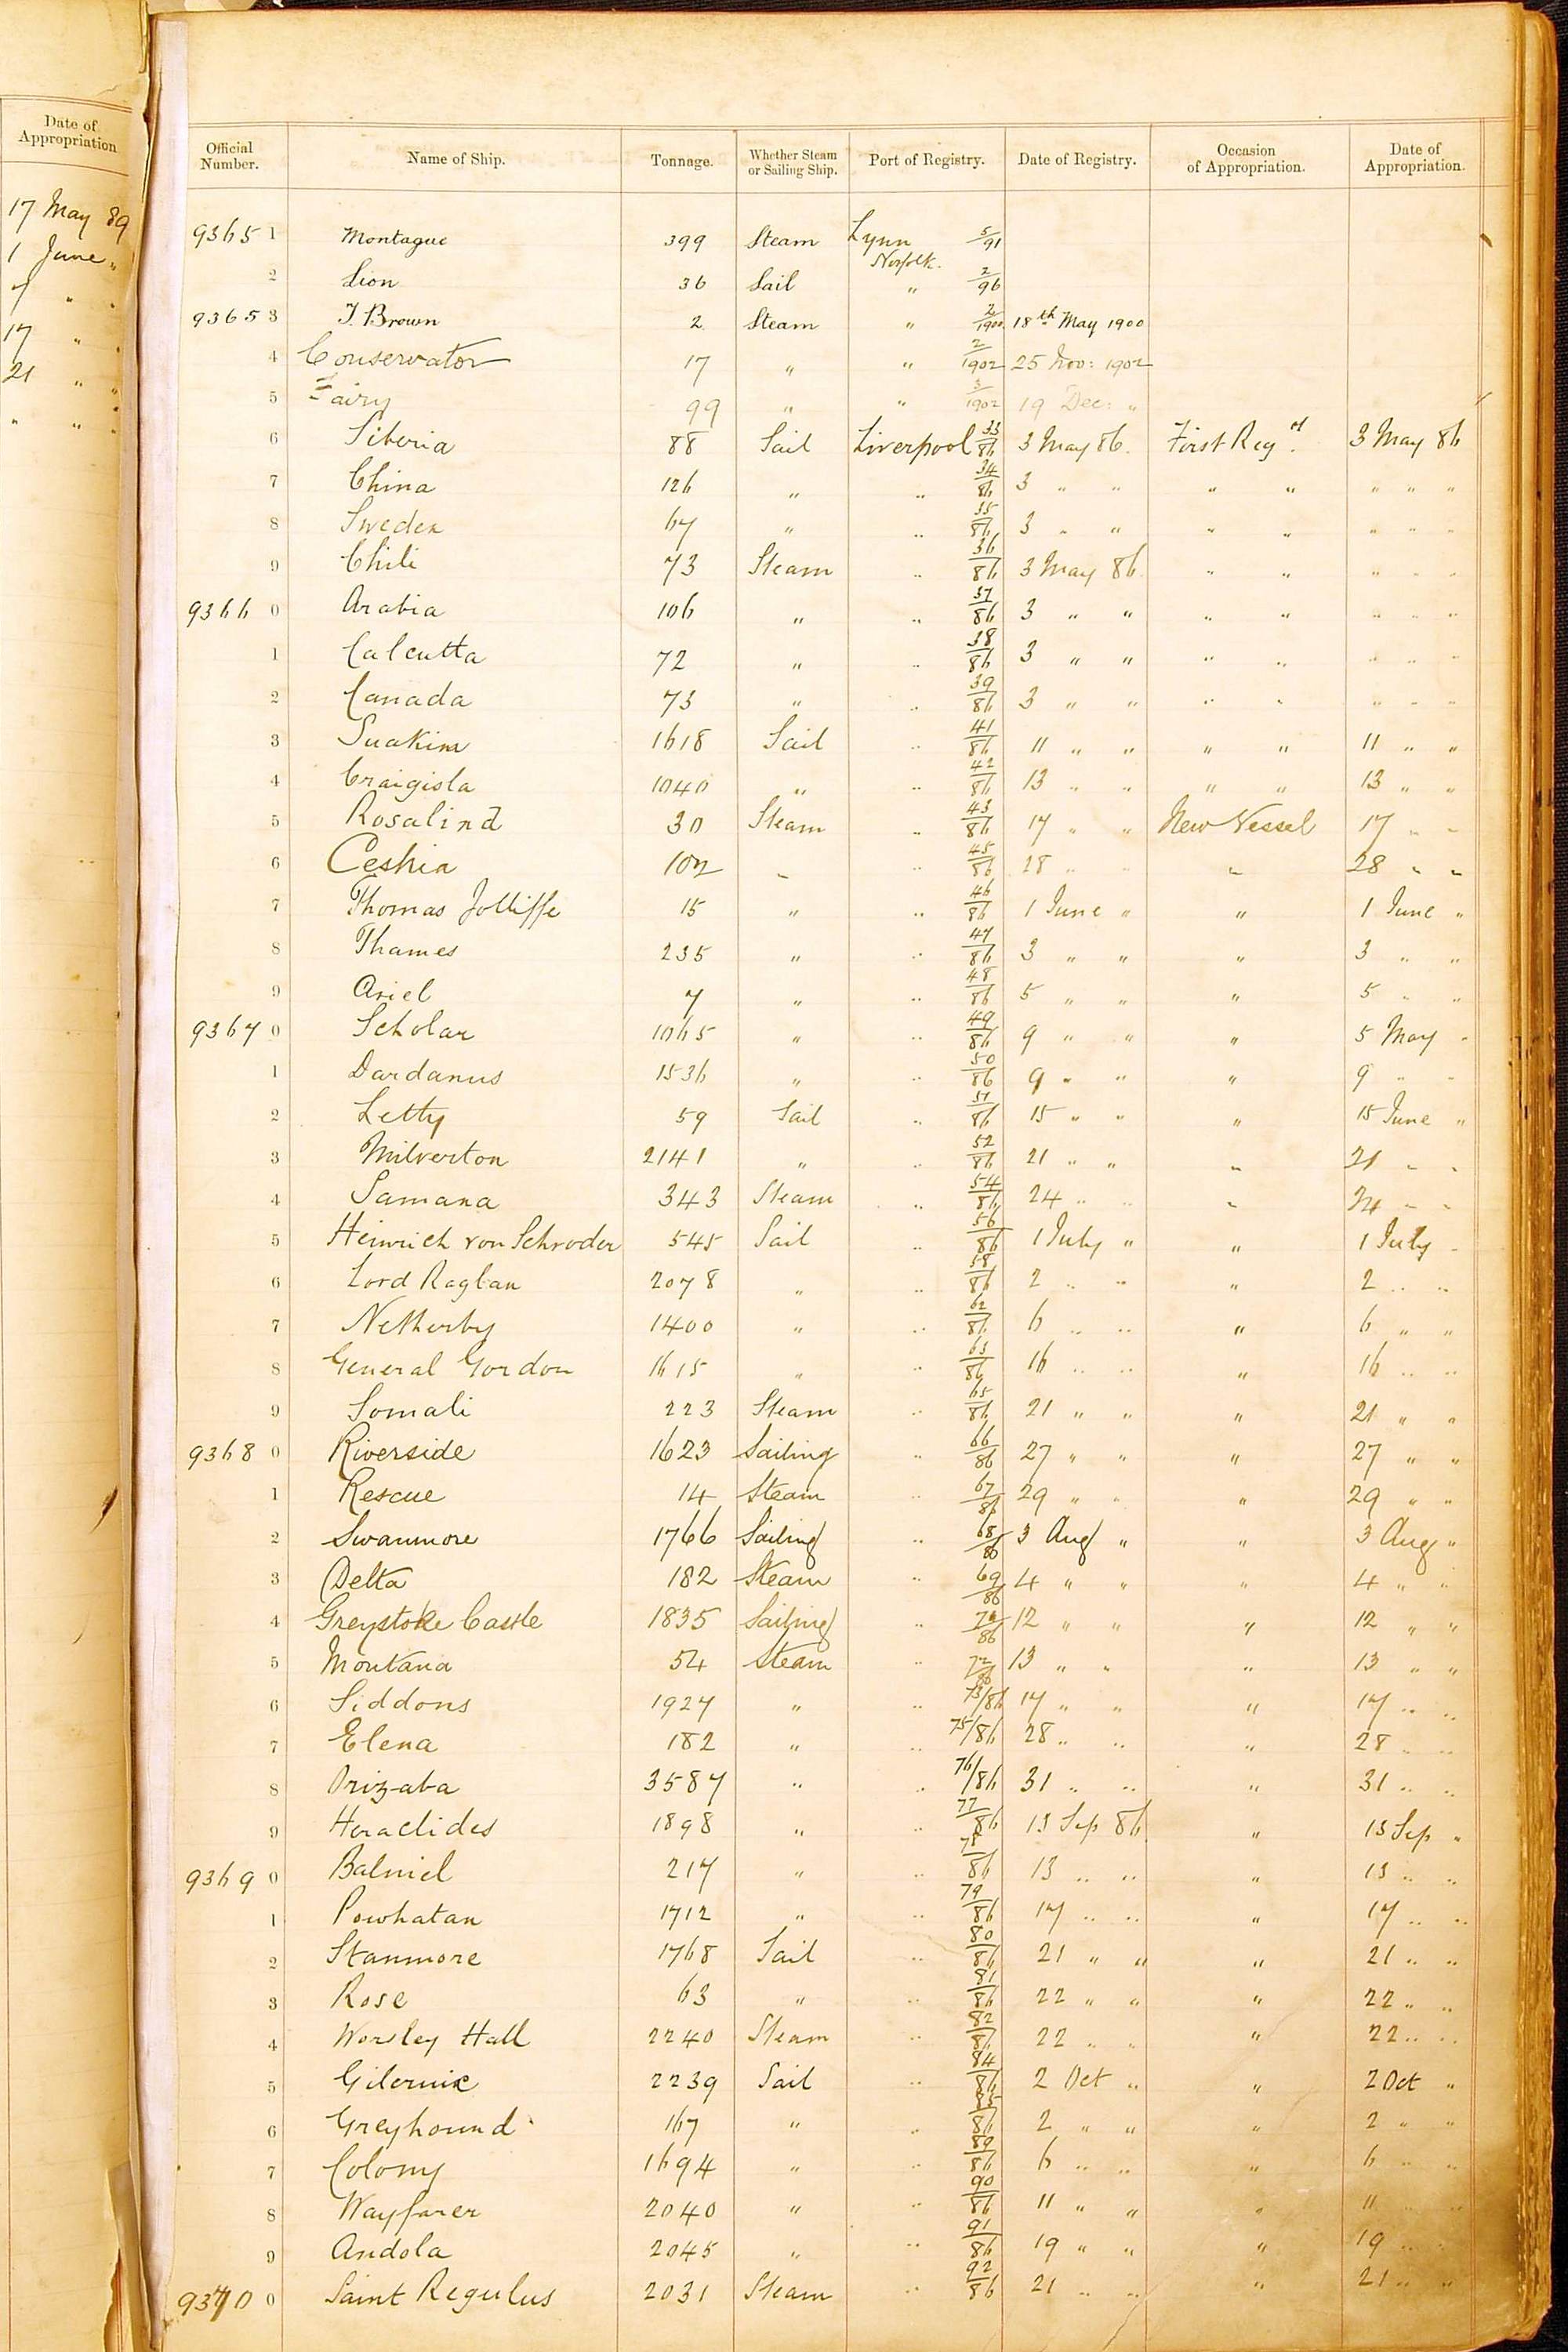 Date of
Appropriation
17 May 89
1 June "
7 " "
17 " "
21 " "
" " "
Official Number. Name of Ship. Tonnage. Whether Steam or Sailing Ship. Port of Registry. Date of Registry. Occasion of Appropriation. Date of Appropriation.
9365 1 Montague 399 Steam Lynn Norfolk. 5/91
2 Lion 36 Sail " 2/96
9365 3 T. Brown 2 Steam " 2/1900 18th May 1900
4 Conservator 17 " " 2/1902 25 Nov: 1902
5 Fairy 99 " " 3/1902 19 Dec: "
6 Siberia 88 Sail Liverpool 33/86 3 May 86. First Regd. 3 May 86
7 China 126 " " 34/86 3 " " " " " " "
8 Sweden 67 " " 35/86 3 " " " " " " "
9 Chili 73 Steam " 36/86 3 May 86 " " " " "
9366 0 Arabia 106 " " 37/86 3 " " " " " " "
1 Calcutta 72 " " 38/86 3 " " " " " " "
2 Canada 73 " " 39/86 3 " " " " " " "
3 Suakim 1618 Sail " 41/86 11 " " " " 11 " "
4 Craigisla 1040 " " 42/86 13 " " " " 13 " "
5 Rosalind 30 Steam " 43/86 17 " " New Vessel 17 " "
6 Ceshia 102 " " 45/86 28 " " " 28 " "
7 Thomas Jolliffe 15 " " 46/86 1 June " " 1 June "
8 Thames 235 " " 47/86 3 " " " 3 " "
9 Ariel 7 " " 48/86 5 " " " 5 " "
9367 0 Scholar 1065 " " 49/86 9 " " " 5 May "
1 Dardanus 1536 " " 50/86 9 " " " 9 " "
2 Letty 59 Sail " 51/86 15 " " " 15 June "
3 Milverton 2141 " " 52/86 21 " " " 21 " "
4 Samana 343 Steam " 54/86 24 " " " 24 " "
5 Heinrich von Schroder 545 Sail " 56/86 1 July " " 1 July "
6 Lord Raglan 2078 " " 58/86 2 " " " 2 " "
7 Netherby 1400 " " 62/86 6 " " " 6 " "
8 General Gordon 1615 " " 63/86 16 " " " 16 " "
9 Somali 223 Steam " 65/86 21 " " " 21 " "
9368 0 Riverside 1623 Sailing " 66/86 27 " " " 27 " "
1 Rescue 14 Steam " 67/86 29 " " " 29 " "
2 Swanmore 1766 Sailing " 68/86 3 Aug " " 3 Aug "
3 Delta 182 Steam " 69/86 4 " " " 4 " "
4 Greystoke Castle 1835 Sailing " 71/86 12 " " " 12 " "
5 Montana 54 Steam " 72/86 13 " " " 13 " "
6 Siddons 1927 " " 73/86 17 " " " 17 " "
7 Elena 182 " " 75/86 28 " " " 28 " "
8 Orizaba 3587 " " 76/86 31 " " " 31 " "
9 Heraclides 1898 " " 77/86 13 Sep 86 " 13 Sep "
9369 0 Balniel 217 " " 78/86 13 " " " 13 " "
1 Powhatan 1712 " " 79/86 17 " " " 17 " "
2 Stanmore 1768 Sail " 80/86 21 " " " 21 " "
3 Rose 63 " " 81/86 22 " " " 22 " "
4 Worsley Hall 2240 Steam " 82/86 22 " " " 22 " "
5 Gilcruix 2239 Sail " 84/86 2 Oct " " 2 Oct "
6 Greyhound 167 " " 85/86 2 " " " 2 " "
7 Colony 1694 " " 89/86 6 " " " 6 " "
8 Wayfarer 2040 " " 90/86 11 " " " 11 " "
9 Andola 2045 " " 91/86 19 " " " 19 " "
9370 0 Saint Regulus 2031 Steam " 92/86 21 " " " 21 " "